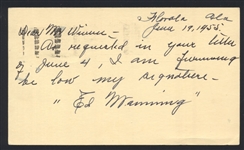 Florala Ala
June 19, 1955
Dear Mr
As requested in your letter
of June 4, I am
below my signature -
"Ed Manning"